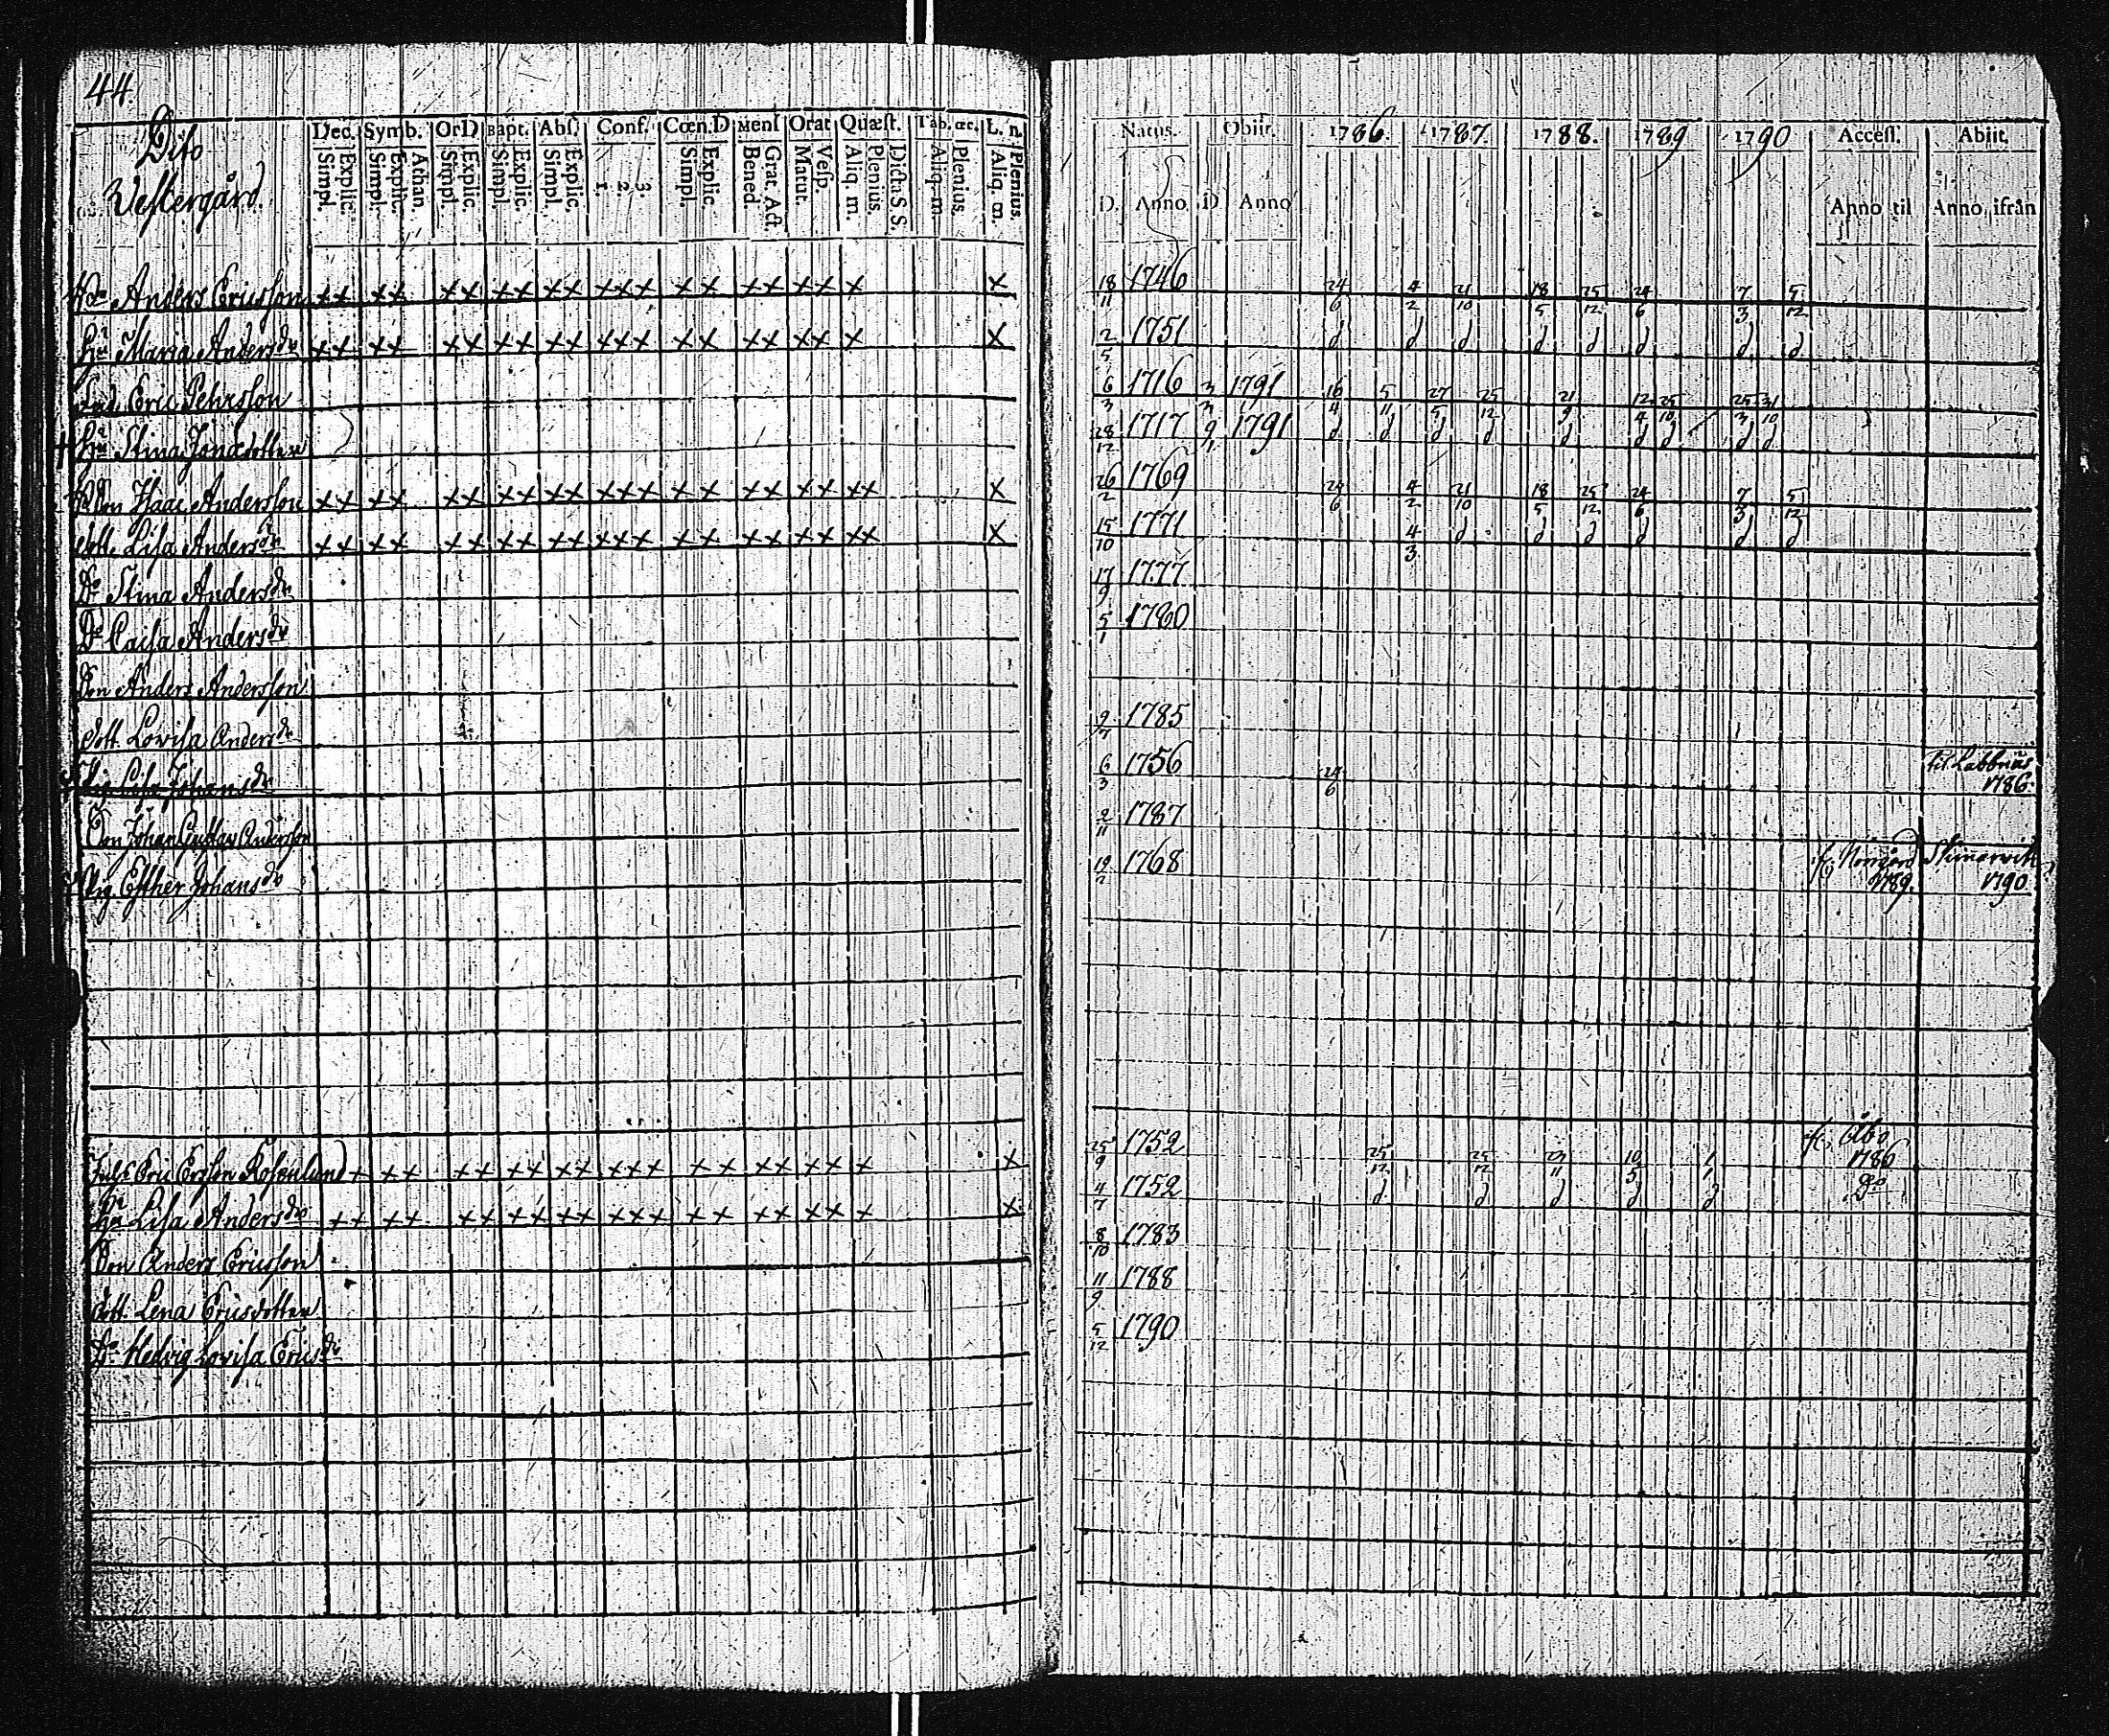 44
Dito
Westergård.
Dec. Symb. OrD Bapt. Abſ. Conf. Cœn.D Menſ Orat Quæſt. Tab. œc. L. n.
Simpl. Explic. Simpl. Explic. Athan. Simpl. Explic. Simpl. Explic. Simpl. Explic. 1. 2. 3. Simpl. Explic. Bened. Grat. Act. Matut. Veſp. Aliq. m. Plenius. Dicta S S. Aliq. m. Plenius. Aliq. m. Plenius.
Natus. Obiit. 1786. 1787. 1788. 1789 1790 Acceſſ. Abiit.
D. Anno D Anno Anno til Anno ifrån
Anders Ericsson ×× ×× ×× ×× ×× ××× ×× ×× ×× × × 18/11 1746 24/6 4/2 21/10 18/5 25/12 24/6 7/3 5/12
Hu Maria Andersdr ×× ×× ×× ×× ×× ××× ×× ×× ×× × × 2/5 1751 d d d d d d d d
Eric Pehrsson 6/3 1716 1791 16/4 5/11 27/5 25/12 21/9 12/4 25/10 25/3 31/10
+ Hu Stina Jonædotter 28/12 1717 1791 d d d d d d d d d
Son Isaac Andersson ×× ×× ×× ×× ×× ××× ×× ×× ×× ×× × 26/2 1769 24/6 4/2 21/10 18/5 25/12 24/6 7/3 5/12
Dott. Lisa Andersdr ×× ×× ×× ×× ×× ××× ×× ×× ×× ×× × 15/10 1771 4/3 d d d d d d
Do Stina Andersdr 17/9 1777
Do Caisa Andersdr 5/1 1780
Son Anders Andersson
Dott. Lovisa Andersdr 9/7 1785
Pig. Lisa Johansdr 6/3 1756 24/6 til Labbnäs
1786.
Son Johan Gustav Andersson 2/11 1787
Pig. Esther Johansdr 19/2 1768 ifr. Norrgård
1789. 1790
Eric Ersson Rosenlund × ×× ×× ×× ×× ××× ×× ×× ×× × × 25/9 1752 25/12 25/12 10/5 1/1 ifr. Åbo
1786
Hu Lisa Andersdr ×× ×× ×× ×× ×× ××× ×× ×× ×× × × 4/7 1752 d d d d d Do
Son Anders Ericsson 8/10 1783
Dott. Lena Ericsdotter 11/9 1788
Do Hedvig Lovisa Ericsdr 5/12 1790